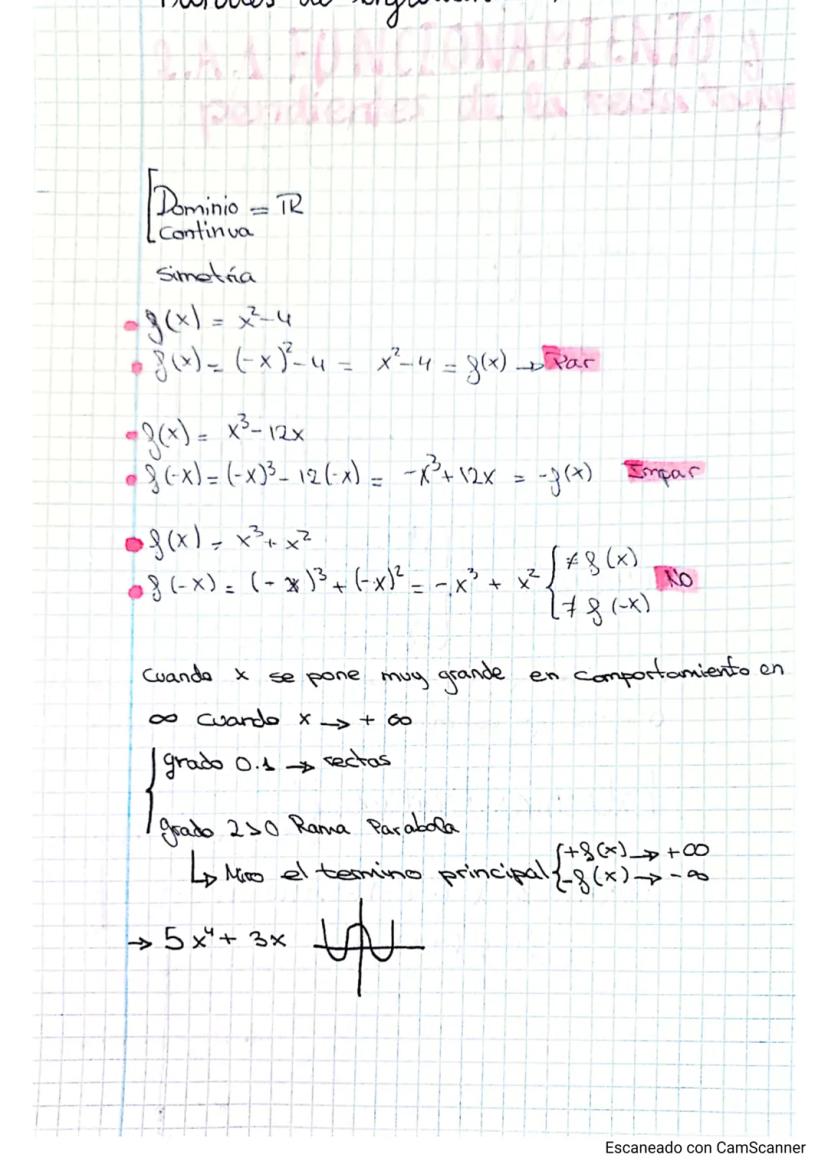 2.A.1 FUNCIONAMIENTO y
pendientes de la recta
[Dominio = ℝ
Continua
Simetría
f(x) = x²-4
f(x) = (-x)²-4 = x²-4 = f(x) → Par
f(x) = x³-12x
f(-x) = (-x)³-12(-x) = -x³+12x = -f(x) Impar
f(x) = x³+x²
f(-x) = (-x)³+(-x)² = -x³ + x² { ≠ f(x)
≠ f(-x) No
Cuando x se pone muy grande en comportamiento en
∞ cuando x → + ∞
{ grado 0.1 → rectas
grado 2>0 Rama Parabola
↳ Miro el termino principal { +f(x) → +∞
-f(x) → -∞
→ 5x⁴+ 3x
Escaneado con CamScanner